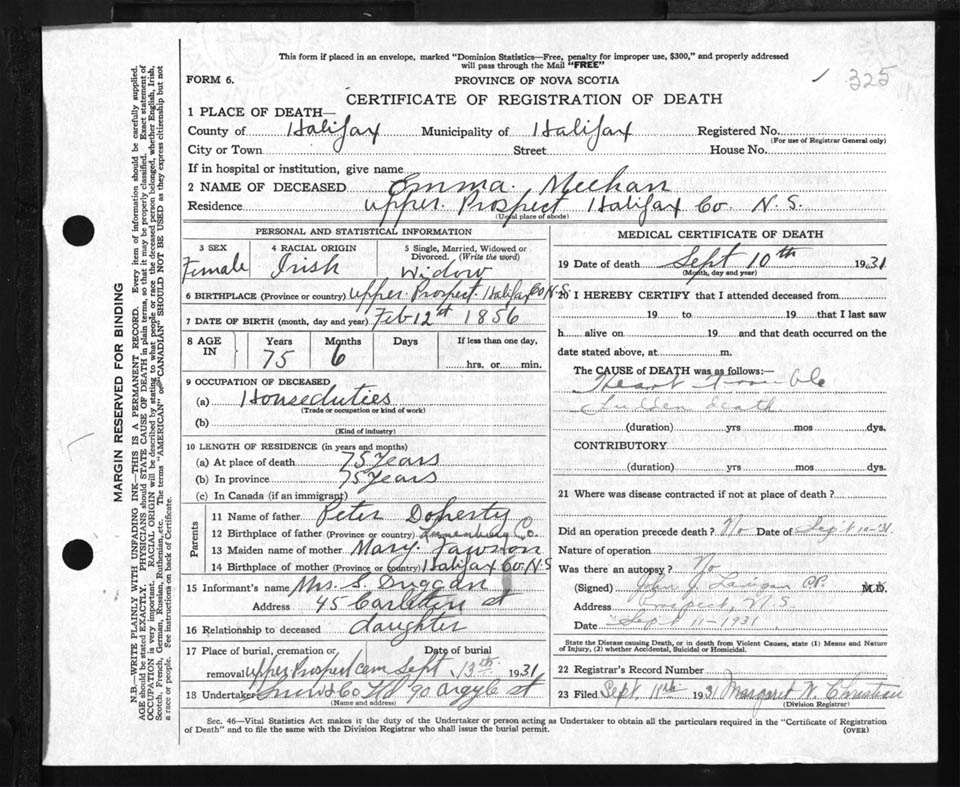 This form if placed in an envelope, marked "Dominion Statistics—Free, penalty for improper use, $300," and properly addressed
will pass through the Mail "FREE"
FORM 6.
PROVINCE OF NOVA SCOTIA
325
CERTIFICATE OF REGISTRATION OF DEATH
1 PLACE OF DEATH—
County of Halifax Municipality of Halifax Registered No.
(For use of Registrar General only)
City or Town Street House No.
If in hospital or institution, give name
2 NAME OF DECEASED Emma Meehan
Residence Upper Prospect Halifax Co. N.S.
(Usual place of abode)
PERSONAL AND STATISTICAL INFORMATION
3 SEX 4 RACIAL ORIGIN 5 Single, Married, Widowed or
Divorced. (Write the word)
Female Irish Widow
6 BIRTHPLACE (Province or country) Upper Prospect Halifax Co N.S.
7 DATE OF BIRTH (month, day and year) Feb 12st 1856
8 AGE IN Years Months Days If less than one day,
75 6 hrs. or min.
9 OCCUPATION OF DECEASED
(a) Houseduties
(Trade or occupation or kind of work)
(b)
(Kind of industry)
10 LENGTH OF RESIDENCE (in years and months)
(a) At place of death 75 Years
(b) In province 75 Years
(c) In Canada (if an immigrant)
Parents
11 Name of father Peter Doherty
12 Birthplace of father (Province or country) Lunenburg Co.
13 Maiden name of mother Mary
14 Birthplace of mother (Province or country) Halifax Co. N.S
15 Informant's name Mrs. S. Duggan
Address 45 Carleton st
16 Relationship to deceased daughter
17 Place of burial, cremation or Date of burial
removal Upper Prospect cem Sept 13th 1931
18 Undertaker Snow & Co Ltd 90 Argyle st
(Name and address)
MEDICAL CERTIFICATE OF DEATH
19 Date of death Sept 10th 1931
(Month, day and year)
20 I HEREBY CERTIFY that I attended deceased from
19 to 19 that I last saw
h alive on 19 and that death occurred on the
date stated above, at m.
The CAUSE of DEATH was as follows:—
Heart Trouble
Sudden death
(duration) yrs mos dys.
CONTRIBUTORY
(duration) yrs mos dys.
21 Where was disease contracted if not at place of death?
Did an operation precede death? No Date of Sept 10-31
Nature of operation
Was there an autopsy? No
(Signed) John J. P.P. M.D.
Address Prospect, N.S.
Date Sept 11-1931
State the Disease causing Death, or in death from Violent Causes, state (1) Means and Nature
of Injury, (2) whether Accidental, Suicidal or Homicidal.
22 Registrar's Record Number
23 Filed Sept 11th 1931 Margaret W. Christian
(Division Registrar)
Sec. 46—Vital Statistics Act makes it the duty of the Undertaker or person acting as Undertaker to obtain all the particulars required in the "Certificate of Registration
of Death" and to file the same with the Division Registrar who shall issue the burial permit.
(OVER)
MARGIN RESERVED FOR BINDING
N.B.—WRITE PLAINLY WITH UNFADING INK—THIS IS A PERMANENT RECORD. Every item of information should be carefully supplied.
AGE should be stated EXACTLY. PHYSICIANS should STATE CAUSE OF DEATH in plain terms, so that it may be properly classified. Exact statement of
OCCUPATION is very important. RACIAL ORIGIN will be described by stating to what people or race the deceased person belonged, whether English, Irish,
Scotch, French, German, Russian, Ruthenian, etc. The terms "AMERICAN" or "CANADIAN" SHOULD NOT BE USED as they express citizenship but not
a race or people. See instructions on back of Certificate.